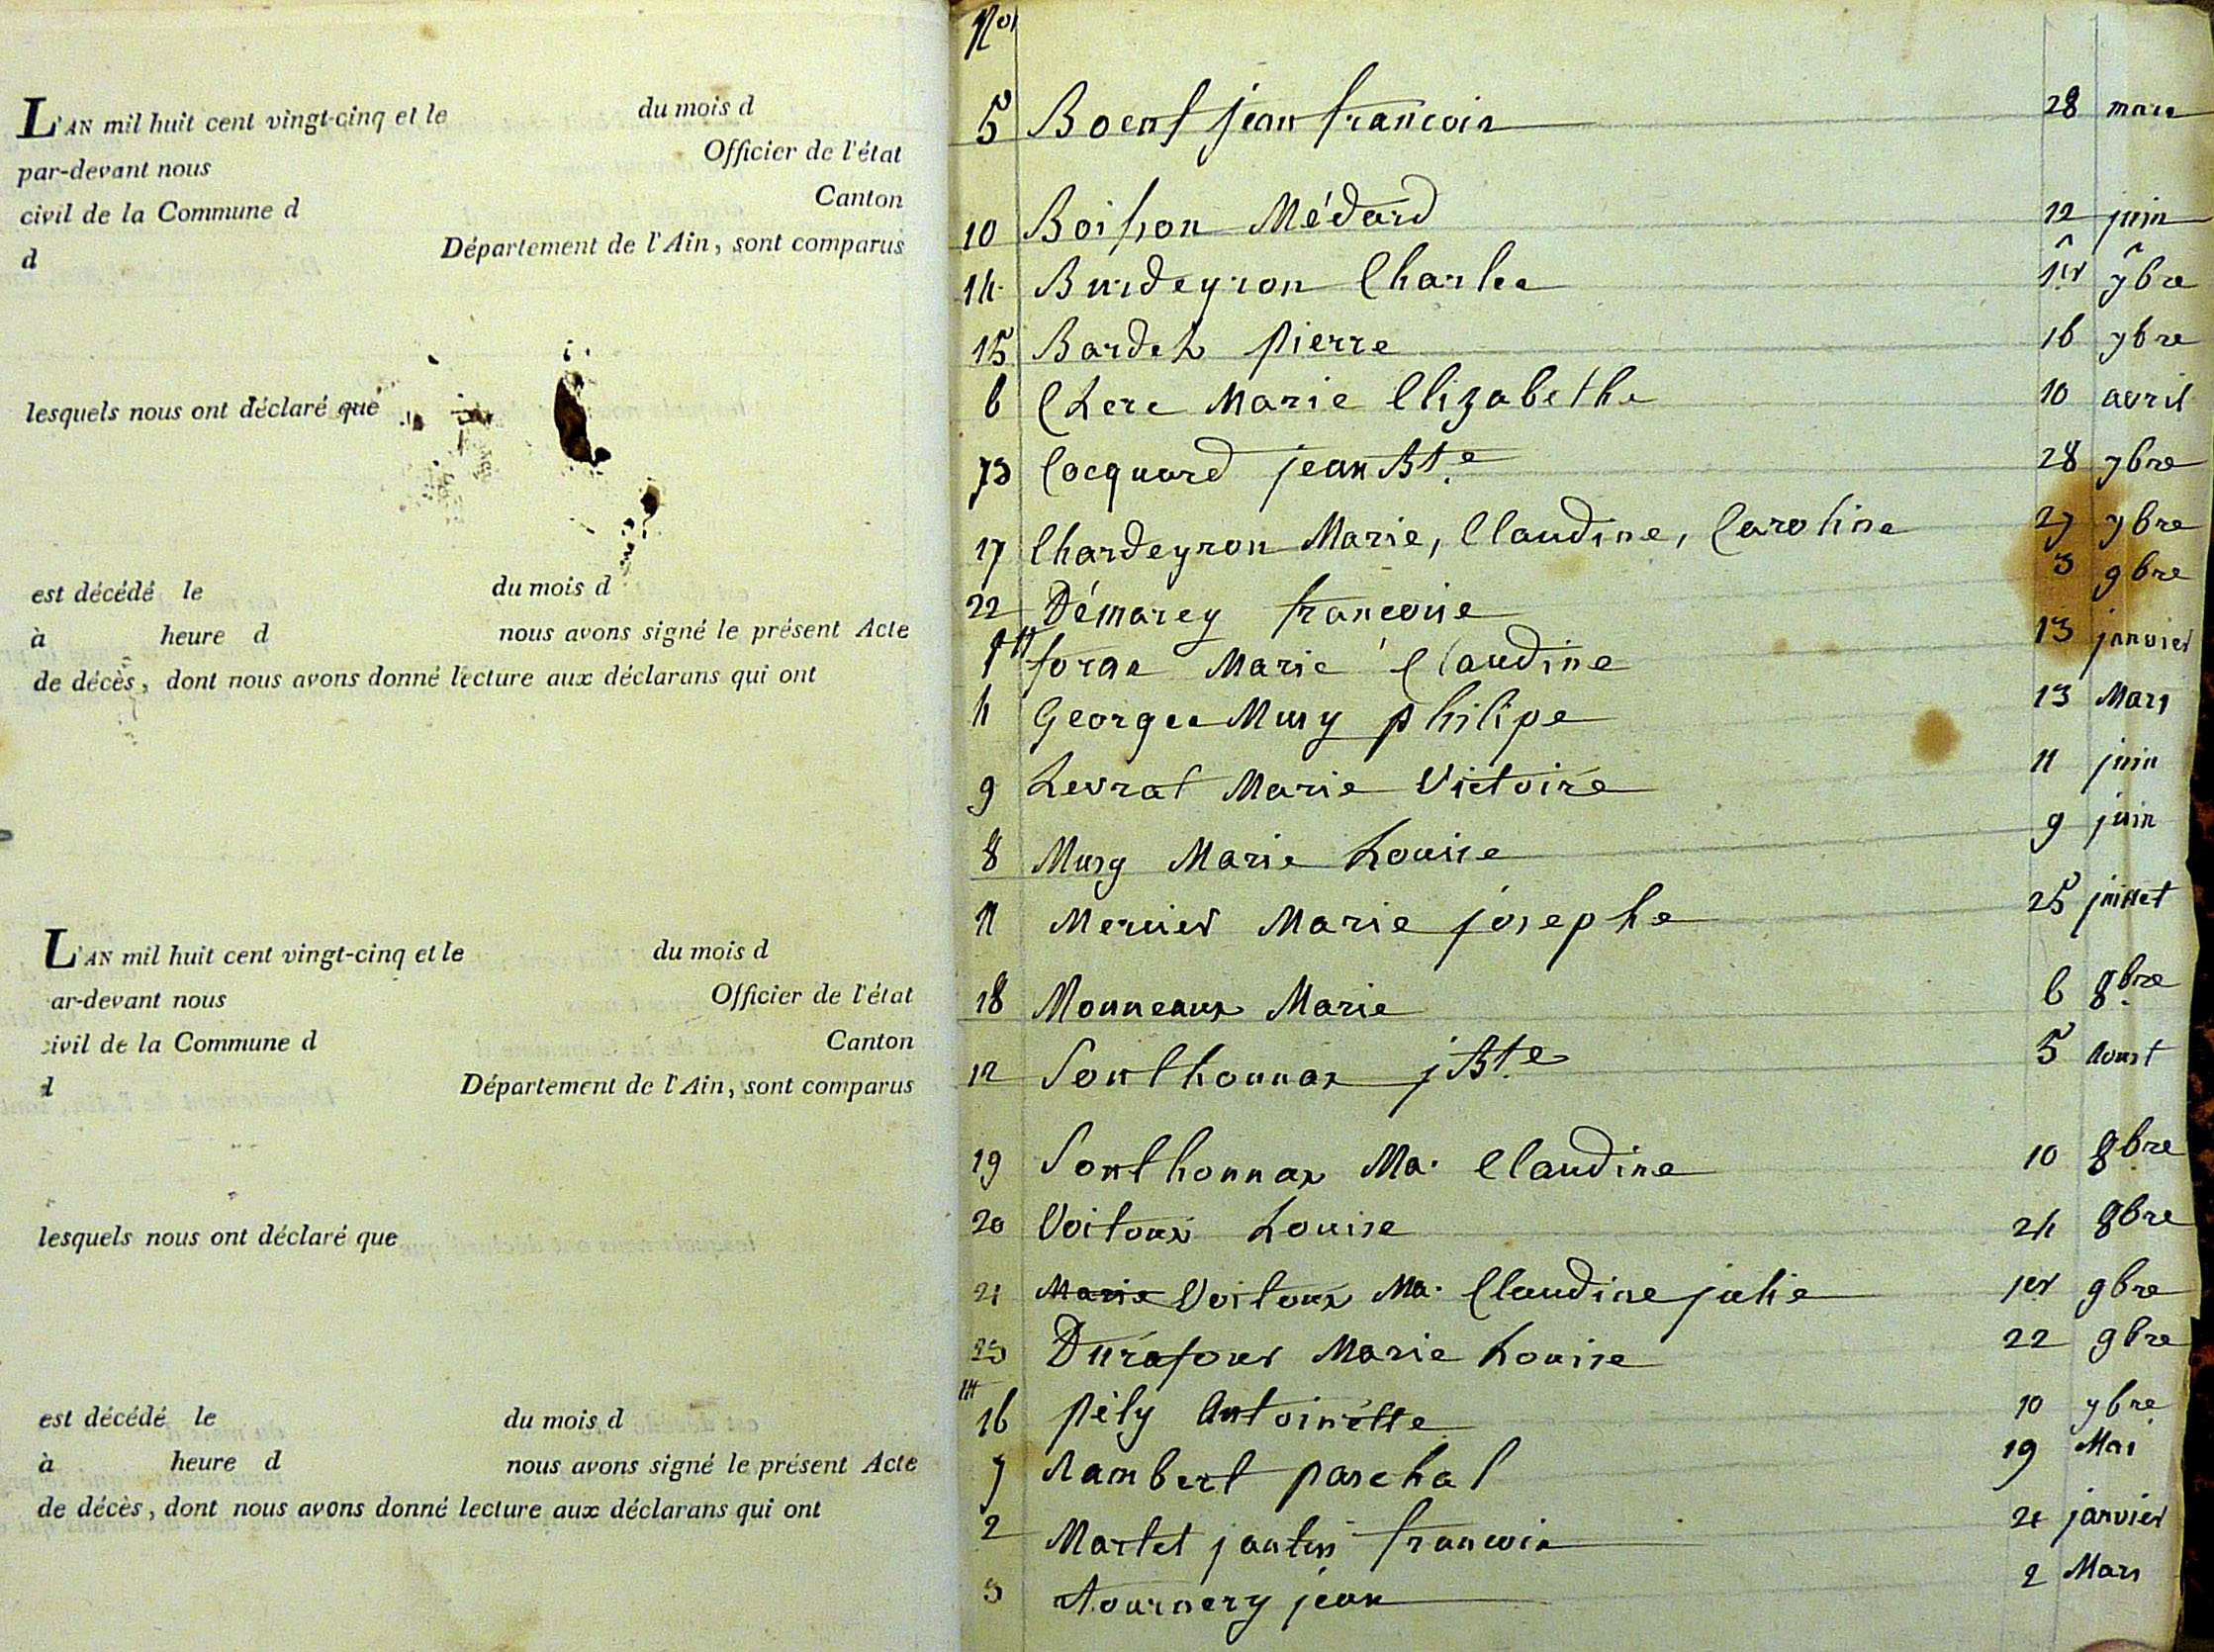 L'AN mil huit cent vingt-cinq et le du mois d
par-devant nous Officier de l'état
civil de la Commune d Canton
d Département de l'Ain, sont comparus
lesquels nous ont déclaré que
est décédé le du mois d
à heure d nous avons signé le présent Acte
de décès, dont nous avons donné lecture aux déclarans qui ont
L'AN mil huit cent vingt-cinq et le du mois d
ar-devant nous Officier de l'état
civil de la Commune d Canton
d Département de l'Ain, sont comparus
lesquels nous ont déclaré que
est décédé le du mois d
à heure d nous avons signé le présent Acte
de décès, dont nous avons donné lecture aux déclarans qui ont
Nos
5 jean francois 28 mars
10 Boisson Médard 12 juin
14 Burdeyron Charles 1er 7bre
15 Bardet pierre 16 7bre
6 Chere Marie Elizabethe 10 avril
Cocquard jean Bte 28 7bre
17 Chardeyron Marie, Claudine, Caroline 27 7bre
22 Démarey francoise 3 9bre
1er forge Marie Claudine 13 janvier
4 George Musy philipe 13 Mars
9 Levrat Marie Victoire 11 juin
8 Musy Marie Louise 9 juin
11 Mercier Marie josephe 25 juillet
18 Monneaux Marie 6 8bre
12 Sonthonnax j Bte 5 Aoust
19 Sonthonnax Ma. Claudine 10 8bre
20 Voitoux Louise 24 8bre
21 Marie Voitoux Ma. Claudine julie 1er 9bre
23 Durafour Marie Louise 22 9bre
16 pèly Antoinètte 10 7bre
7 Rambert paschal 19 Mai
2 Martet francois 21 janvier
3 tournery jean 2 Mars